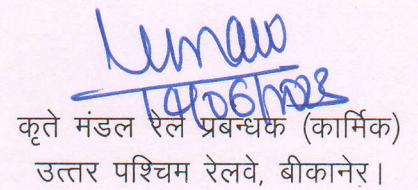 14/06/2023
कृते मंडल रेल प्रबन्धक (कार्मिक)
उत्तर पश्चिम रेलवे, बीकानेर।